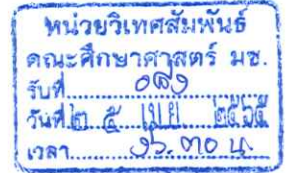 หน่วยวิเทศสัมพันธ์
คณะศึกษาศาสตร์ มช.
รับที่ ๐๘๑
วันที่ ๒ ๕ เม.ย. ๒๕๖๕
เวลา ๑๖.๓๐ น.